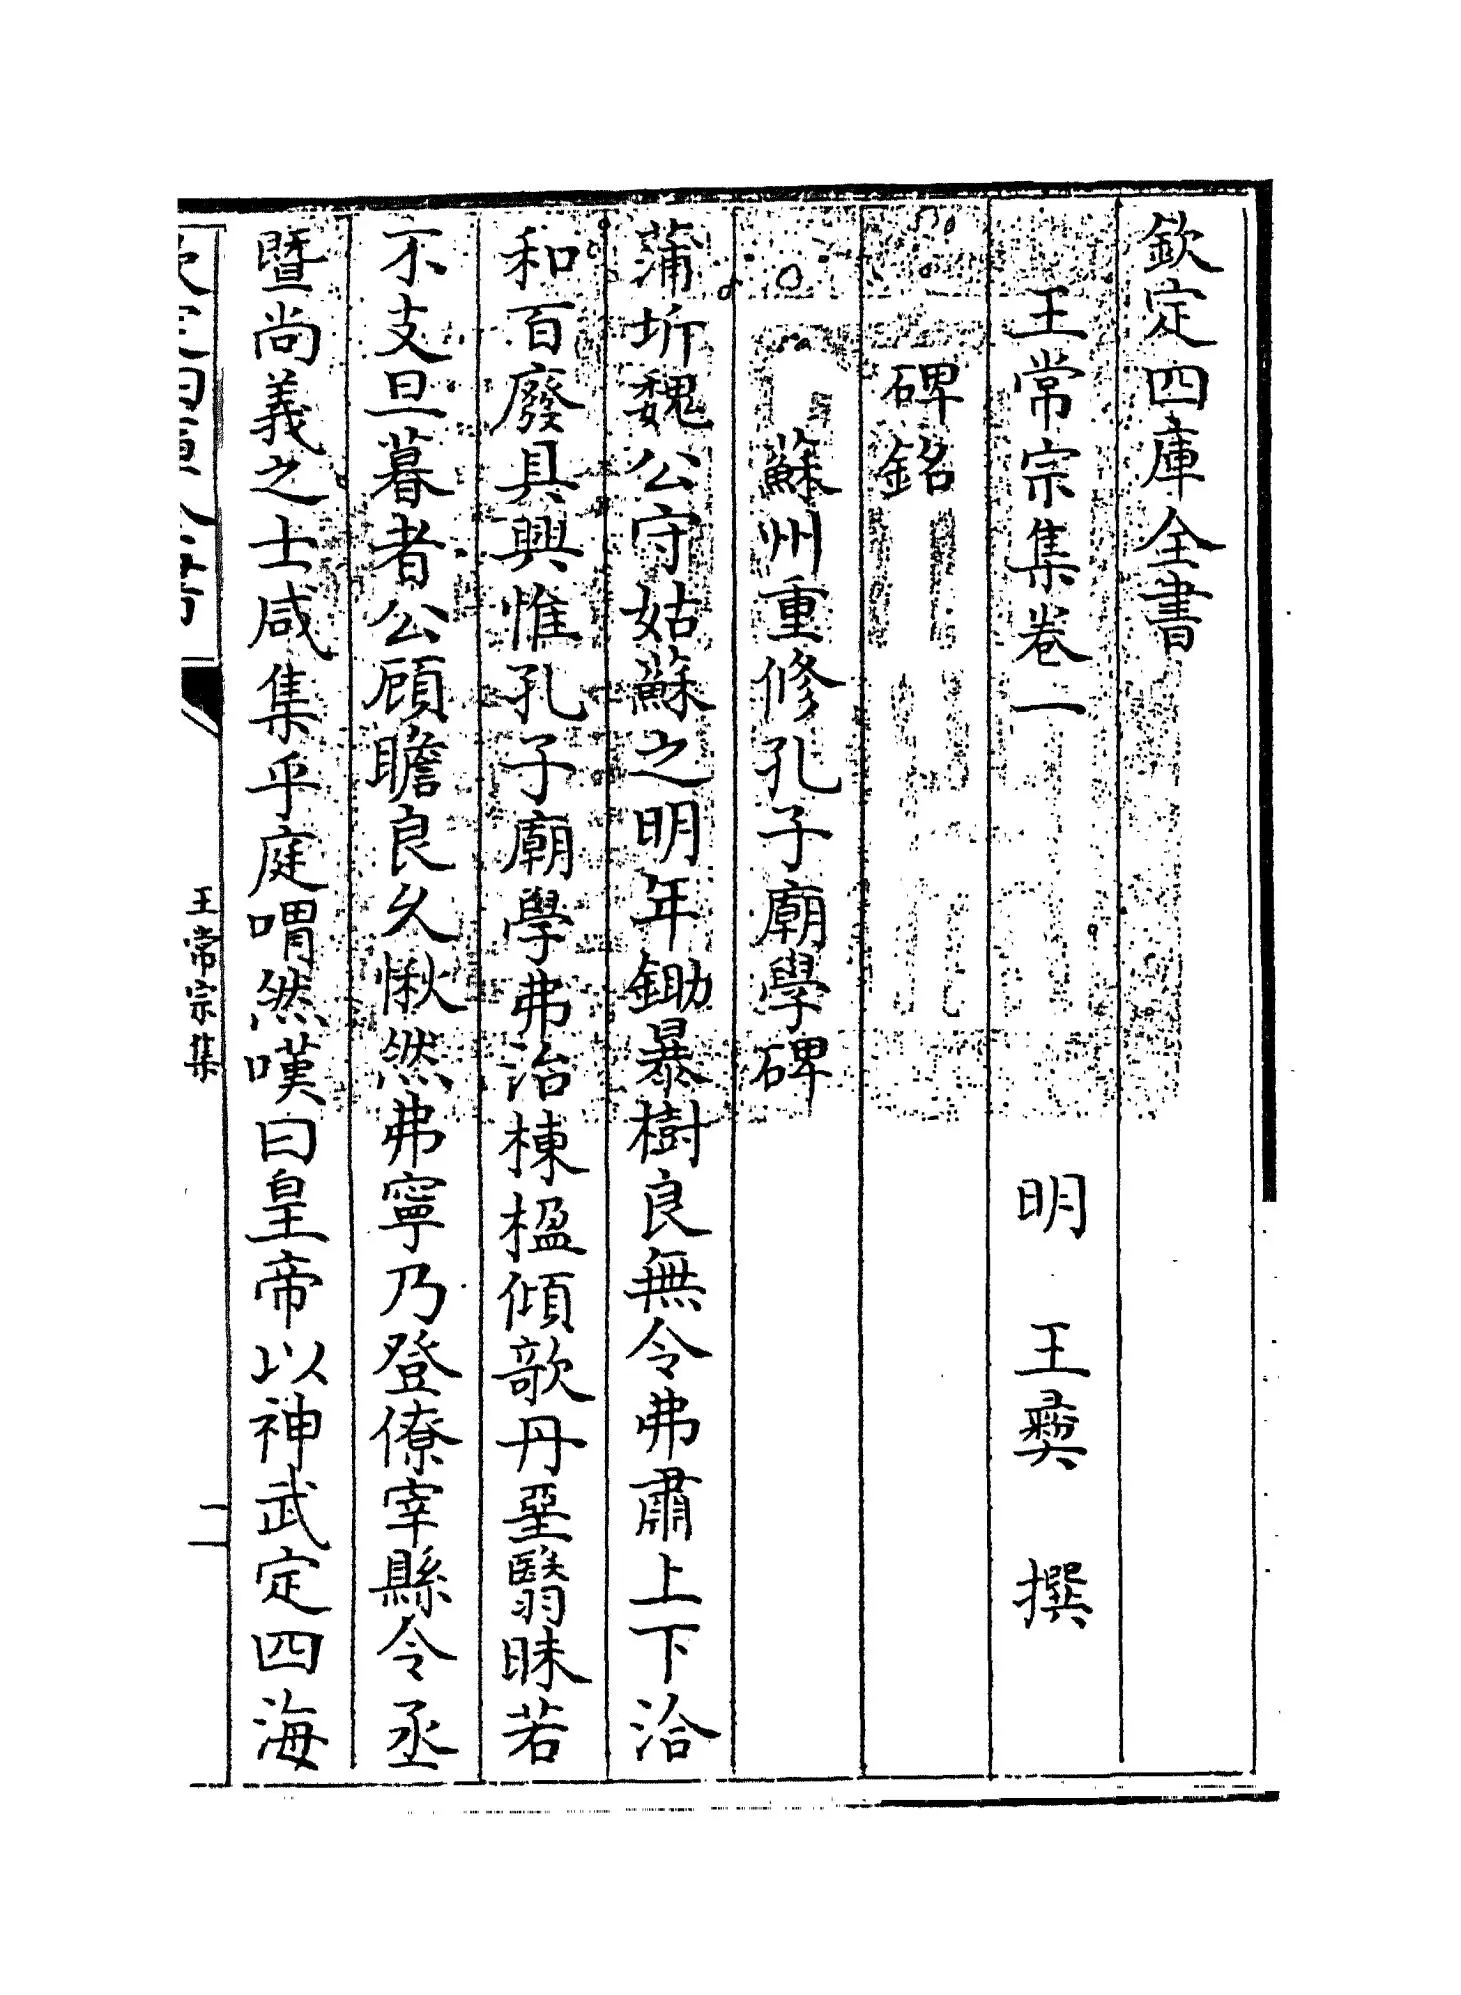 欽定四庫全書
王常宗集卷一 明 王彝 撰
碑銘
蘇州重修孔子廟學碑
蒲圻魏公守姑蘇之明年鋤暴樹良無令弗肅上下洽
和百廢具興惟孔子廟學弗治棟楹傾欹丹堊翳昧若
不支旦暮者公顧瞻良久愀然弗寧乃登僚宰縣令丞
暨尚義之士咸集乎庭喟然嘆曰皇帝以神武定四海
王常宗集
一